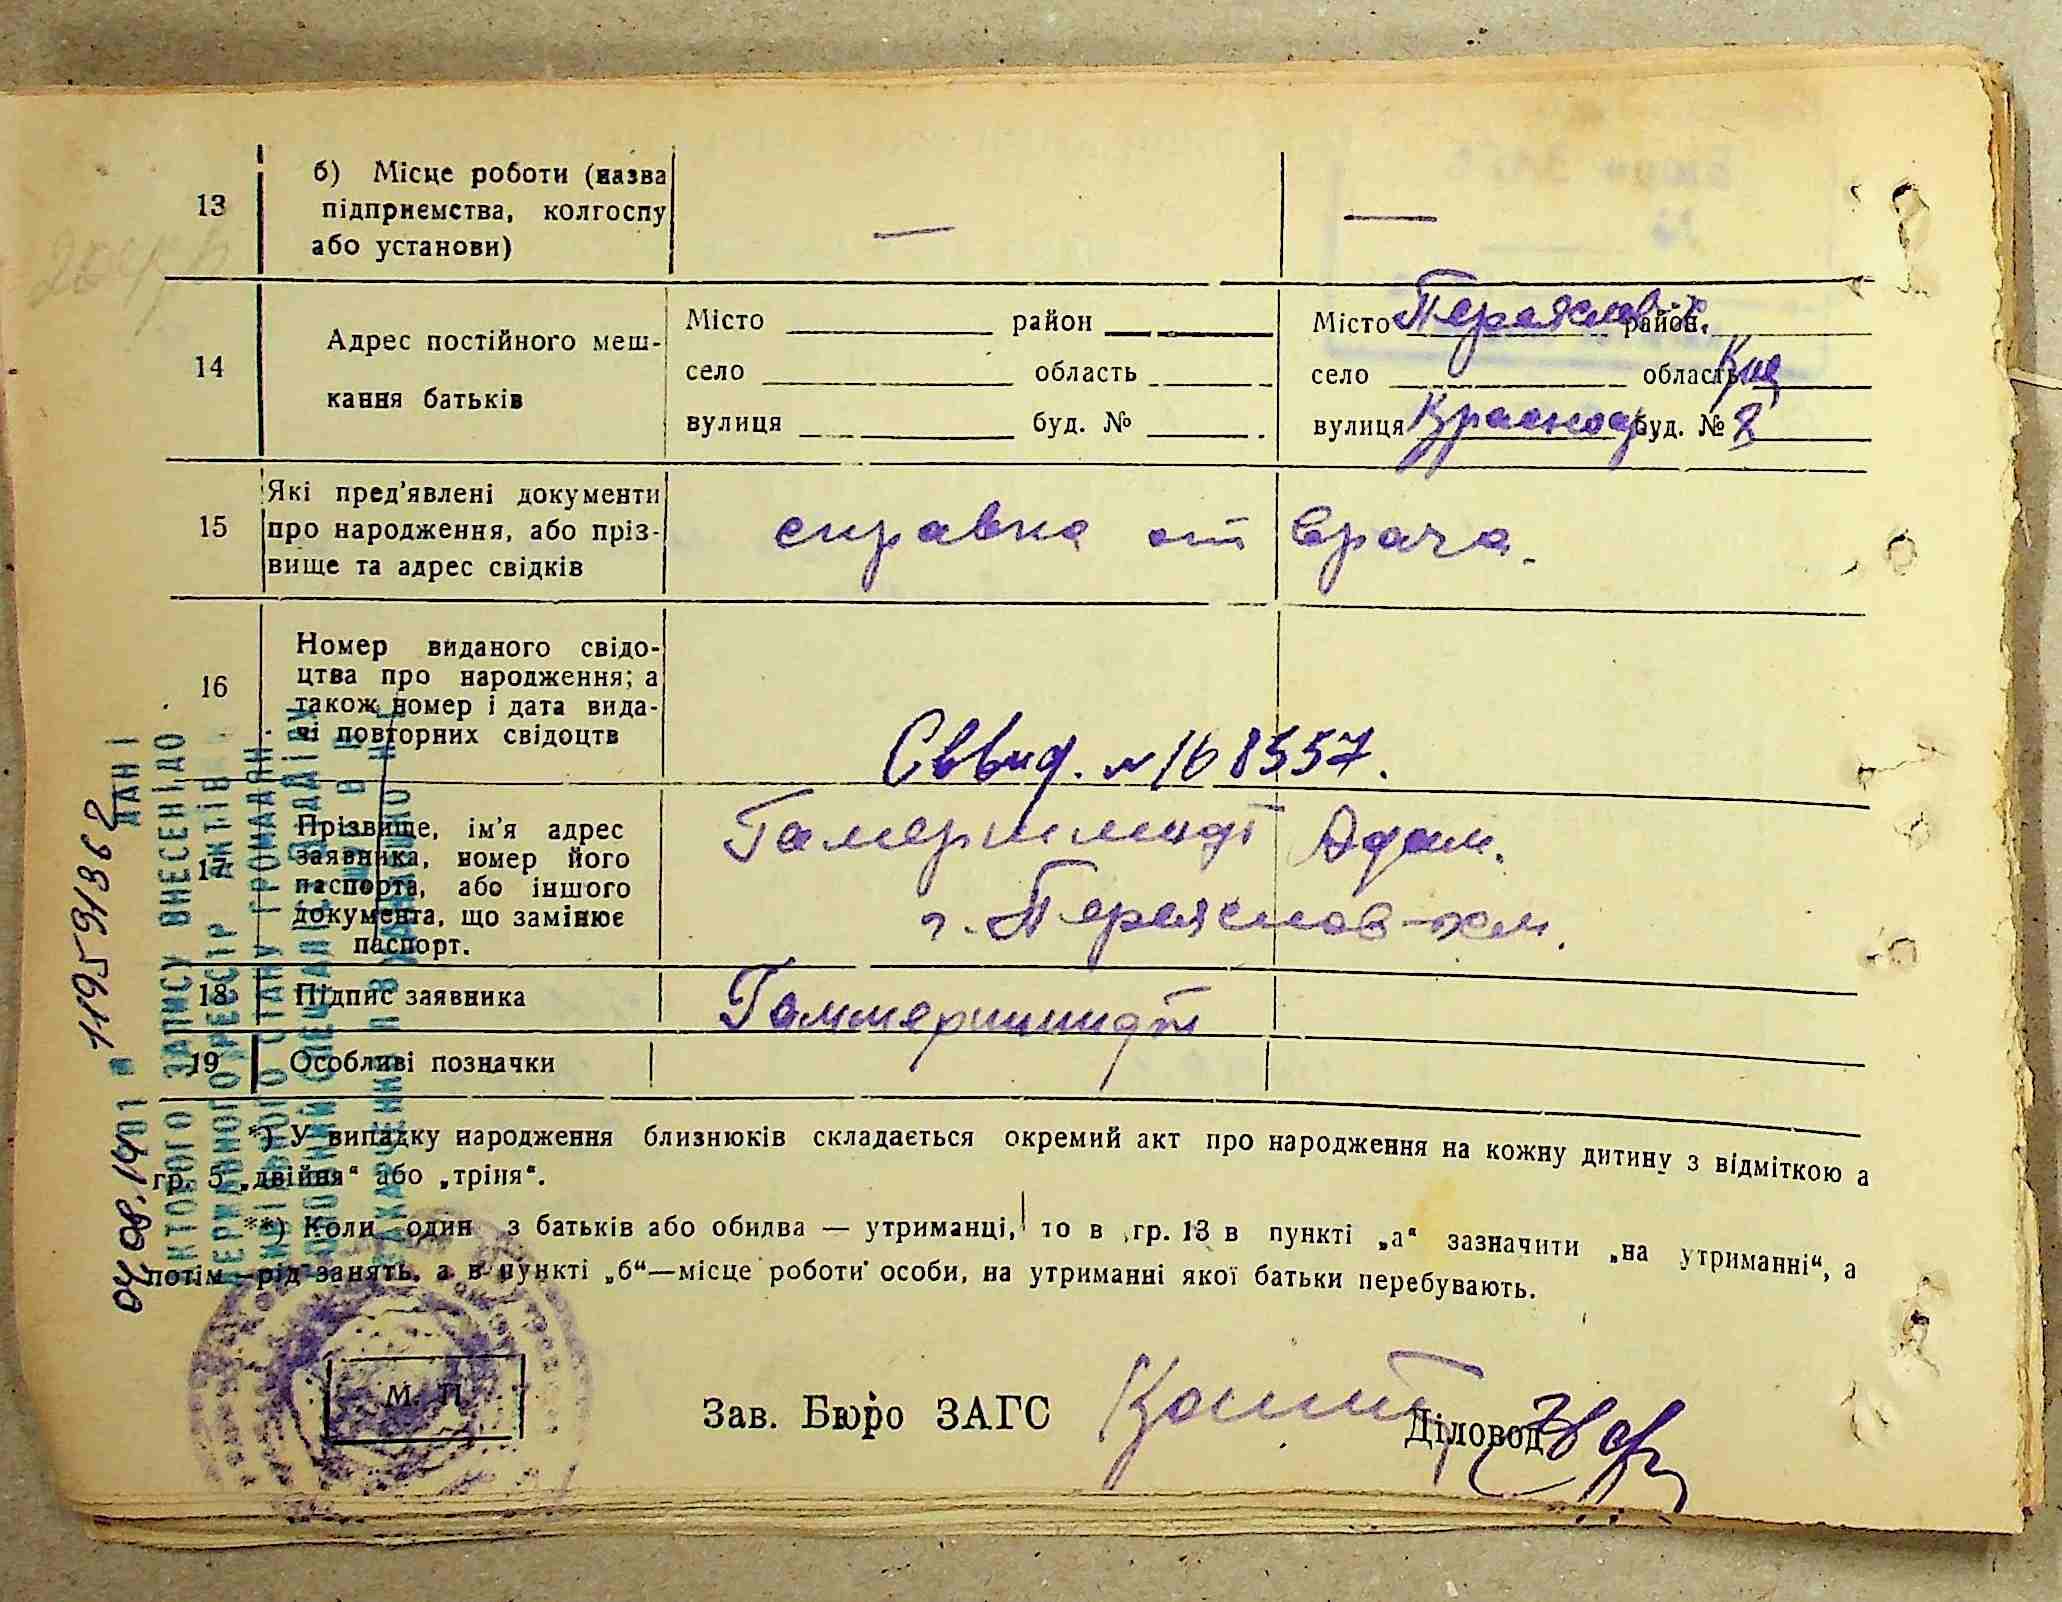 13 б) Місце роботи (назва
підприємства, колгоспу
або установи) — —
14 Адрес постійного меш-
кання батьків
Місто район
село область
вулиця буд. №
Місто район
село область
вулиця буд. № 8
15 Які пред'явлені документи
про народження, або пріз-
вище та адрес свідків
справка от врача.
16 Номер виданого свідо-
цтва про народження; а
також номер і дата вида-
чі повторних свідоцтв
№ 168557.
17 Прізвище, ім'я адрес
заявника, номер його
паспорта, або іншого
документа, що замінює
паспорт.
Адам.
г. Переяслов-хм.
18 Підпис заявника
19 Особливі позначки
*) У випадку народження близнюків складається окремий акт про народження на кожну дитину з відміткою а
гр. 5 „двійня“ або „тріня“.
**) Коли один з батьків або обидва — утриманці, то в гр. 13 в пункті „а“ зазначити „на утриманні“, а
потім—рід занять, а в пункті „б“—місце роботи особи, на утриманні якої батьки перебувають.
М. П.
Зав. Бюро ЗАГС
Діловод
ДАНІ
АКТОВОГО ЗАПИСУ ВНЕСЕНІ ДО
ДЕРЖАВНОГО РЕЄСТР АКТІВ
ЦИВІЛЬНОГО СТАНУ ГРОМАДЯН